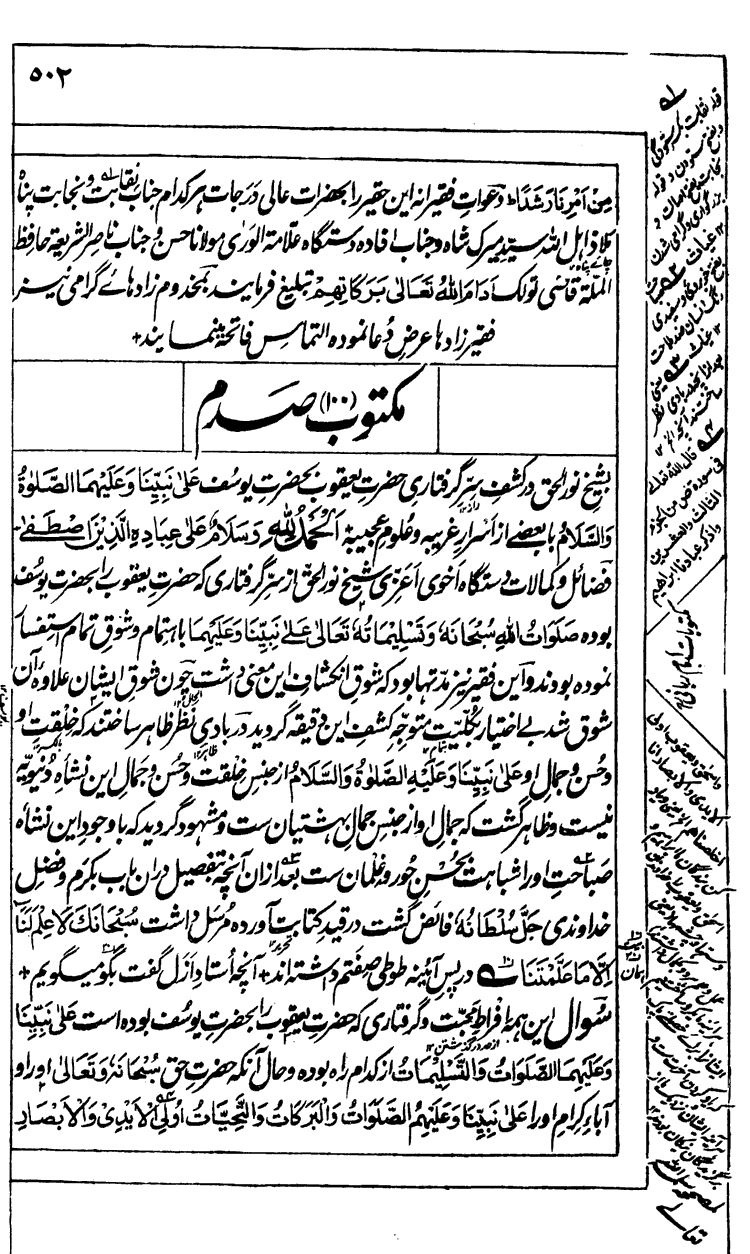 ۵۰۲
مِنْ اَمْرِنَا رَشَدًا و دعواتِ فقیرانه این حقیر را بحضرات عالی درجات هر کدام جناب نقابت و نجابت پناه
ملاذ اہل اللہ سید میرک شاہ و جناب افادہ دستگاہ علامۃ الوریٰ مولانا حسن و جناب ناصر الشریعۃ حافظ
الملّۃ قاضی تولک اَدَامَ اللہُ تَعَالیٰ بَرَکَاتِهِمْ تبلیغ فرمایند بمخدوم زادہاے گرامی نیز
فقیر زادہا عرضِ دُعا نمودہ التماس فاتحہ مینمایند+
مکتوب (۱۰۰) صدم
بشیخ نور الحق در کشفِ سِرِّ گرفتاریِ حضرتِ یعقوب بحضرتِ یوسُف عَلیٰ نَبِیِّنَا وَعَلَیْهِمَا الصَّلٰوةُ
وَالسَّلَامُ با بعضے از اَسرارِ غریبہ و علومِ عجیبہ اَلْحَمْدُ لِلّٰهِ وَسَلَامٌ عَلیٰ عِبَادِهِ الَّذِیْنَ اصْطَفٰے
فضائل و کمالات دستگاہ اَخوی اَعَزّی شیخ نور الحق از سِرِّ گرفتاری که حضرتِ یعقوب را بحضرت یوسُف
بوده صَلَوَاتُ اللهِ سُبْحَانَهٗ وَتَسْلِیْمَاتُهٗ تَعَالیٰ عَلیٰ نَبِیِّنَا وَعَلَیْهِمَا باہتمام و شوقِ تمام استفسار
نموده بودند و این فقیر نیز مدّتها بود که شوقِ انکشافِ این معنی داشت چون شوقِ ایشان علاوهٔ آن
شوق شد بے اختیار بکلّیت متوجّهِ کشفِ این دقیقه گردید در بادیِ نظر ظاہر ساختند که خلقتِ او
و حُسن و جمالِ او عَلیٰ نَبِیِّنَا وَعَلَیْهِ الصَّلٰوةُ وَالسَّلَامُ از جنسِ خلقت و حُسن و جمالِ این نشاه دُنیویّه
نیست و ظاہر گشت که جمالِ او از جنسِ جمالِ بهشتیان ست و مشهود گردید که با وجودِ این نشاه
صباحتِ او را شباهت بحُسنِ حُور و غِلمان ست بعد ازان آنچه بتفصیل دران باب بکرم و فضلِ
خداوندی جَلَّ سُلْطَانُهٗ فائض گشت در قیدِ کتابت آورده مُرسَل داشت سُبْحَانَكَ لَا عِلْمَ لَنَا
اِلَّا مَا عَلَّمْتَنَا در پسِ آئینه طوطی صفتم داشته اند+ آنچه اُستادِ اَزل گفت بگو میگویم+
سُوال این ہمه افراطِ محبّت و گرفتاری که حضرتِ یعقوب را بحضرتِ یوسُف بوده است عَلیٰ نَبِیِّنَا
وَعَلَیْهِمَا الصَّلَوَاتُ وَالتَّسْلِیْمَاتُ از کدام راه بوده و حال آنکه حضرتِ حق سُبْحَانَهٗ وَتَعَالیٰ او را و
آباءِ کرامِ او را عَلیٰ نَبِیِّنَا وَعَلَیْهِمُ الصَّلَوَاتُ وَالْبَرَکَاتُ وَالتَّحِیَّاتُ اُولِی الْاَیْدِیْ وَالْاَبْصَارِ
قال اللہ تعالیٰ
فی سورۃ ص من الجزء
الثالث والعشرین
واذکر عبادنا ابراهیم
مکتوبات امام ربانی
واسحق ویعقوب اولی
الایدی والابصار انا